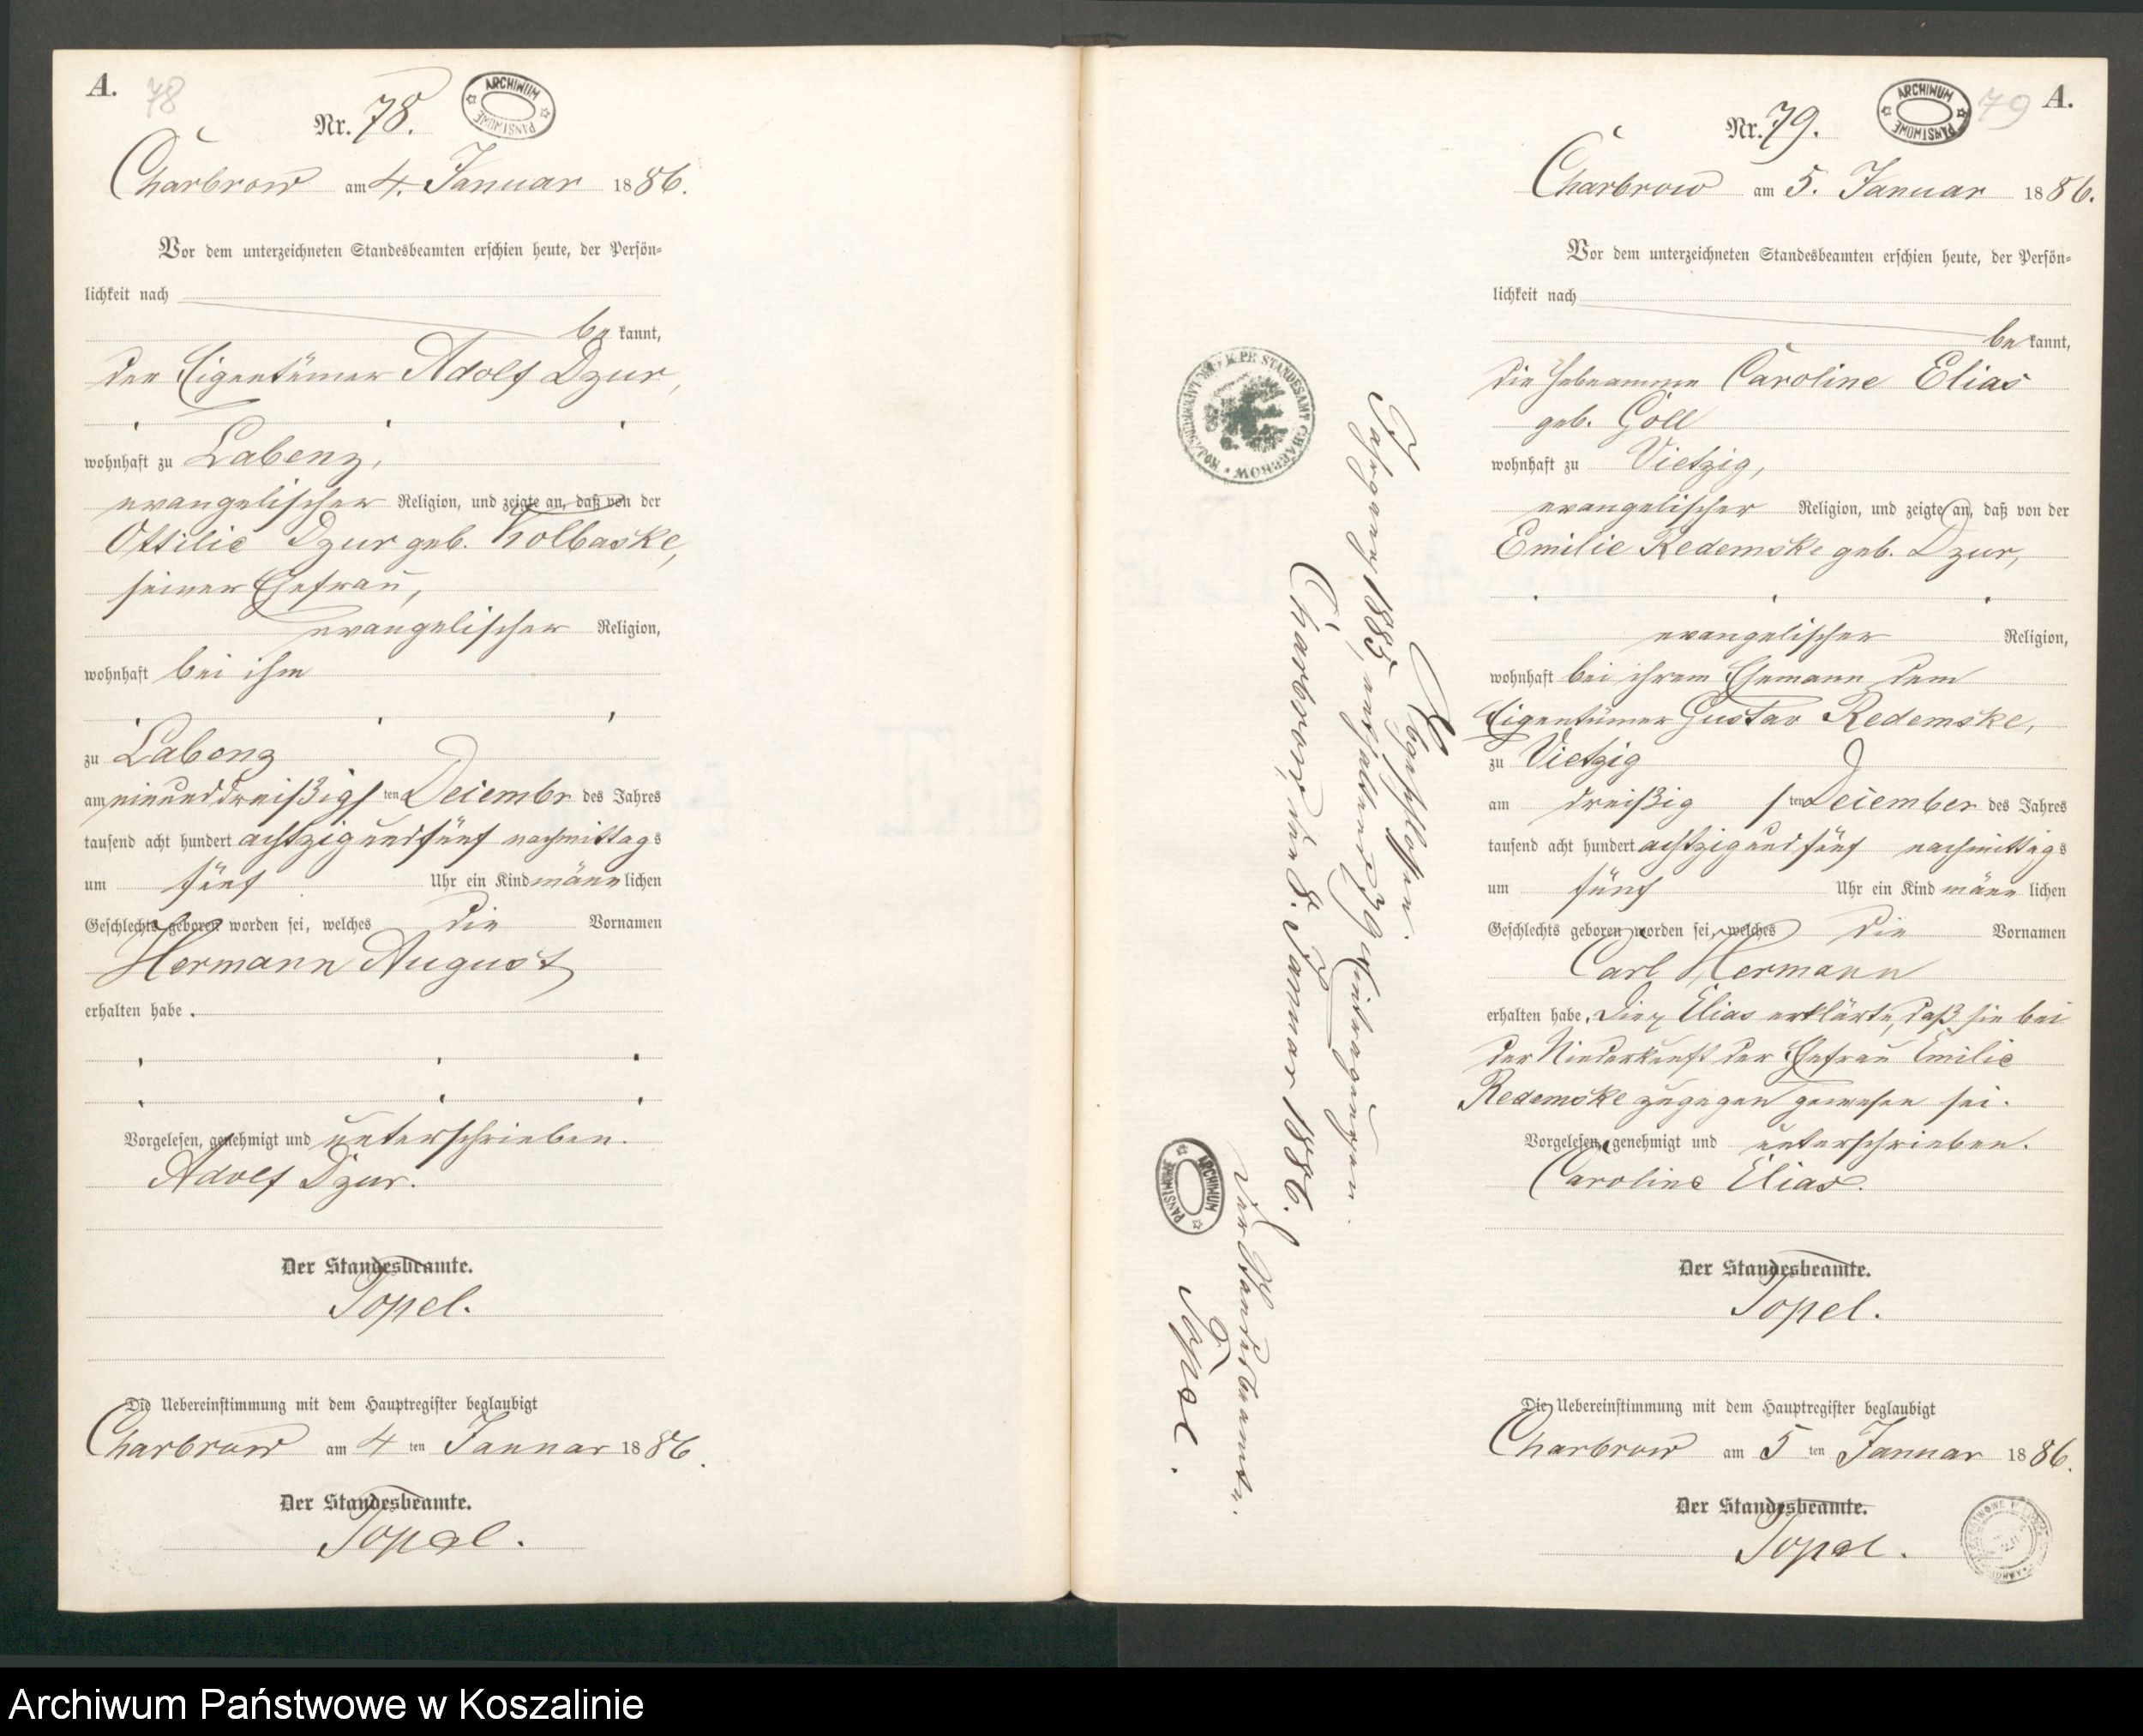 A.
78
Nr. 78.
ARCHIWUM PAŃSTWOWE
Charbrow am 4. Januar 1886.
Vor dem unterzeichneten Standesbeamten erschien heute, der Persön-
lichkeit nach
be kannt,
der Eigentümer Adolf Dzur,
wohnhaft zu Labenz,
evangelischer Religion, und zeigte an, daß von der
Ottilie Dzur geb. Kolbaske,
seiner Ehefrau,
evangelischer Religion,
wohnhaft bei ihm
zu Labenz
am einunddreißigs ten Decembr des Jahres
tausend acht hundert achtzigundfünf nachmittags
um fünf Uhr ein Kind männlichen
Geschlechts geboren worden sei, welches die Vornamen
Hermann August
erhalten habe.
Vorgelesen, genehmigt und unterschrieben.
Adolf Dzur.
Der Standesbeamte.
Topel.
Die Uebereinstimmung mit dem Hauptregister beglaubigt
Charbrow am 4 ten Januar 1886.
Der Standesbeamte.
Topel.
K. PR. STANDESAMT CHARBROW
Abgeschlossen.
Jahrgang 1885, enthaltend 79 Eintragungen.
Charbrow, den 8. Januar 1886.
Der Standesbeamte.
Topel.
ARCHIWUM PAŃSTWOWE
A.
79
Nr. 79.
ARCHIWUM PAŃSTWOWE
Charbrow am 5. Januar 1886.
Vor dem unterzeichneten Standesbeamten erschien heute, der Persön-
lichkeit nach
be kannt,
die Hebeamme Caroline Elias
geb. Göll
wohnhaft zu Vietzig,
evangelischer Religion, und zeigte an, daß von der
Emilie Redemske geb. Dzur,
evangelischer Religion,
wohnhaft bei ihrem Ehemann dem
Eigentümer Gustav Redemske,
zu Vietzig
am dreißig s ten December des Jahres
tausend acht hundert achtzigundfünf nachmittags
um fünf Uhr ein Kind männ lichen
Geschlechts geboren worden sei, welches die Vornamen
Carl Hermann
erhalten habe. Die Elias erklärte, daß sie bei
der Niederkunft der Ehefrau Emilie
Redemske zugegen gewesen sei.
Vorgelesen, genehmigt und unterschrieben.
Caroline Elias.
Der Standesbeamte.
Topel.
Die Uebereinstimmung mit dem Hauptregister beglaubigt
Charbrow am 5 ten Januar 1886.
Der Standesbeamte.
Topel.
Archiwum Państwowe w Koszalinie